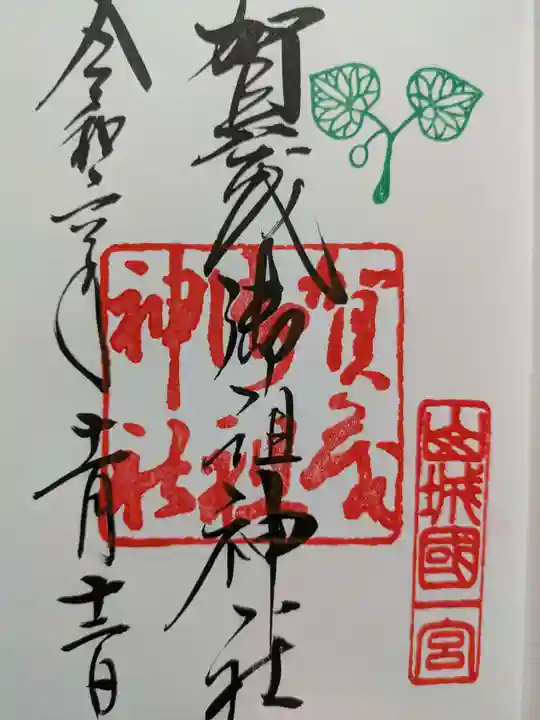 山城國一宮
賀茂御祖神社
賀茂
御祖
神社
令和二年十一月